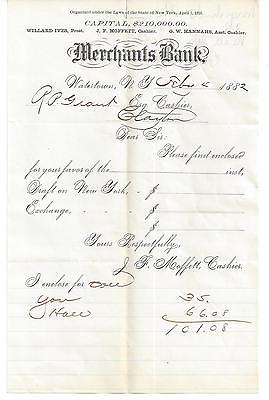 Organized under the Laws of the State of New York, April 1, 1871.
CAPITAL, $210,000.00.
WILLARD IVES, Prest. J. F. MOFFETT, Cashier. G. W. HANNAHS, Asst. Cashier.
Merchants Bank,
Watertown, N. Y. Feby 1882
R. P. Grant Esq Cashier,
Clayton
Dear Sir:
Please find enclosed
for your favor of the inst,
Draft on New York, - $
Exchange, - - - $
$
Yours Respectfully,
J. F. Moffett, Cashier.
I enclose for Coll
You 35.
Hall 66.08
101.08